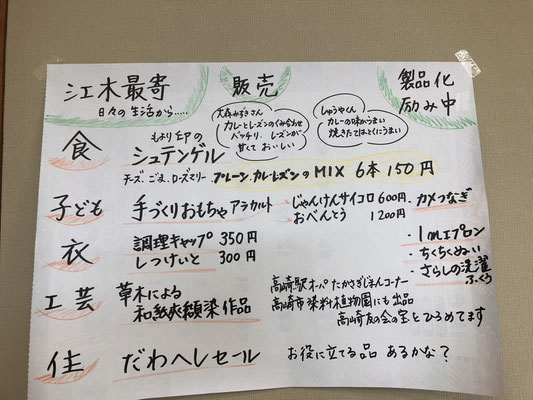 江木最寄
日々の生活から.....
販売
製品化
励み中
大森みずきさん
カレーとレーズンのくみ合わせ
バッチリ、レーズンが
甘くて おいしい
しゅうやくん
カレーの味がうまい
焼きたてはとくにうまい
食
もより印の
シュテンゲル
チーズ、ごま、ローズマリー、プレーン、カレーレーズンのMIX 6本 150円
子ども
手づくりおもちゃ アラカルト
じゃんけんサイコロ 600円
おべんとう 1200円
・カメつなぎ
衣
調理キャップ 350円
しつけいと 300円
・1mエプロン
・ちくちくぬい
・さらしの洗濯
ふくろ
工芸
草木による
和紙夾纈染作品
高崎駅オーパ たかさきじまんコーナー
高崎市染料植物園にも出品
高崎友の会の宝とひろめてます
住
だわへしセール
お役に立てる品 あるかな?